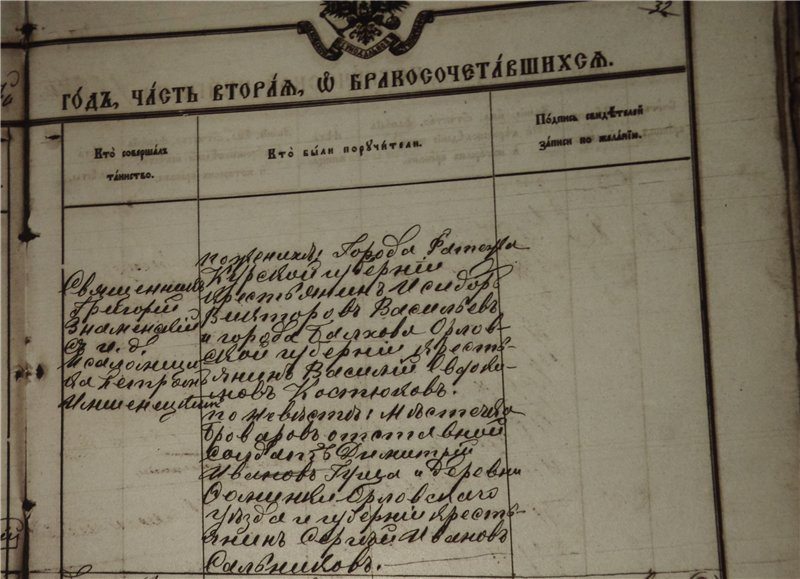 32
го́дъ, ча́сть втора́я, ѽ бракосочета́вшихсѧ.
Кто̀ совершалъ
та́инство.
Кто̀ бы́ли поручи́тели.
По́дпись свидѣ́телей
за́писи по жела́нію.
Священникъ
Григорій
Знаменскій
съ и. д.
псаломщи-
ка Петромъ
по женихѣ: Города Фатежа
Курской губерніи
крестьянинъ Исидоръ
Викторовъ Васильевъ
и города Балхова Орлов-
ской губерніи кресть-
янинъ Василій Евдоки-
мовъ Костюковъ.
по невѣстѣ: Мѣстечка
Броваровъ отставной
солдатъ Димитрій
Ивановъ Гуща и деревни
Орловскаго
уѣзда и губерніи кресть-
янинъ Сергѣй Ивановъ
Сальниковъ.